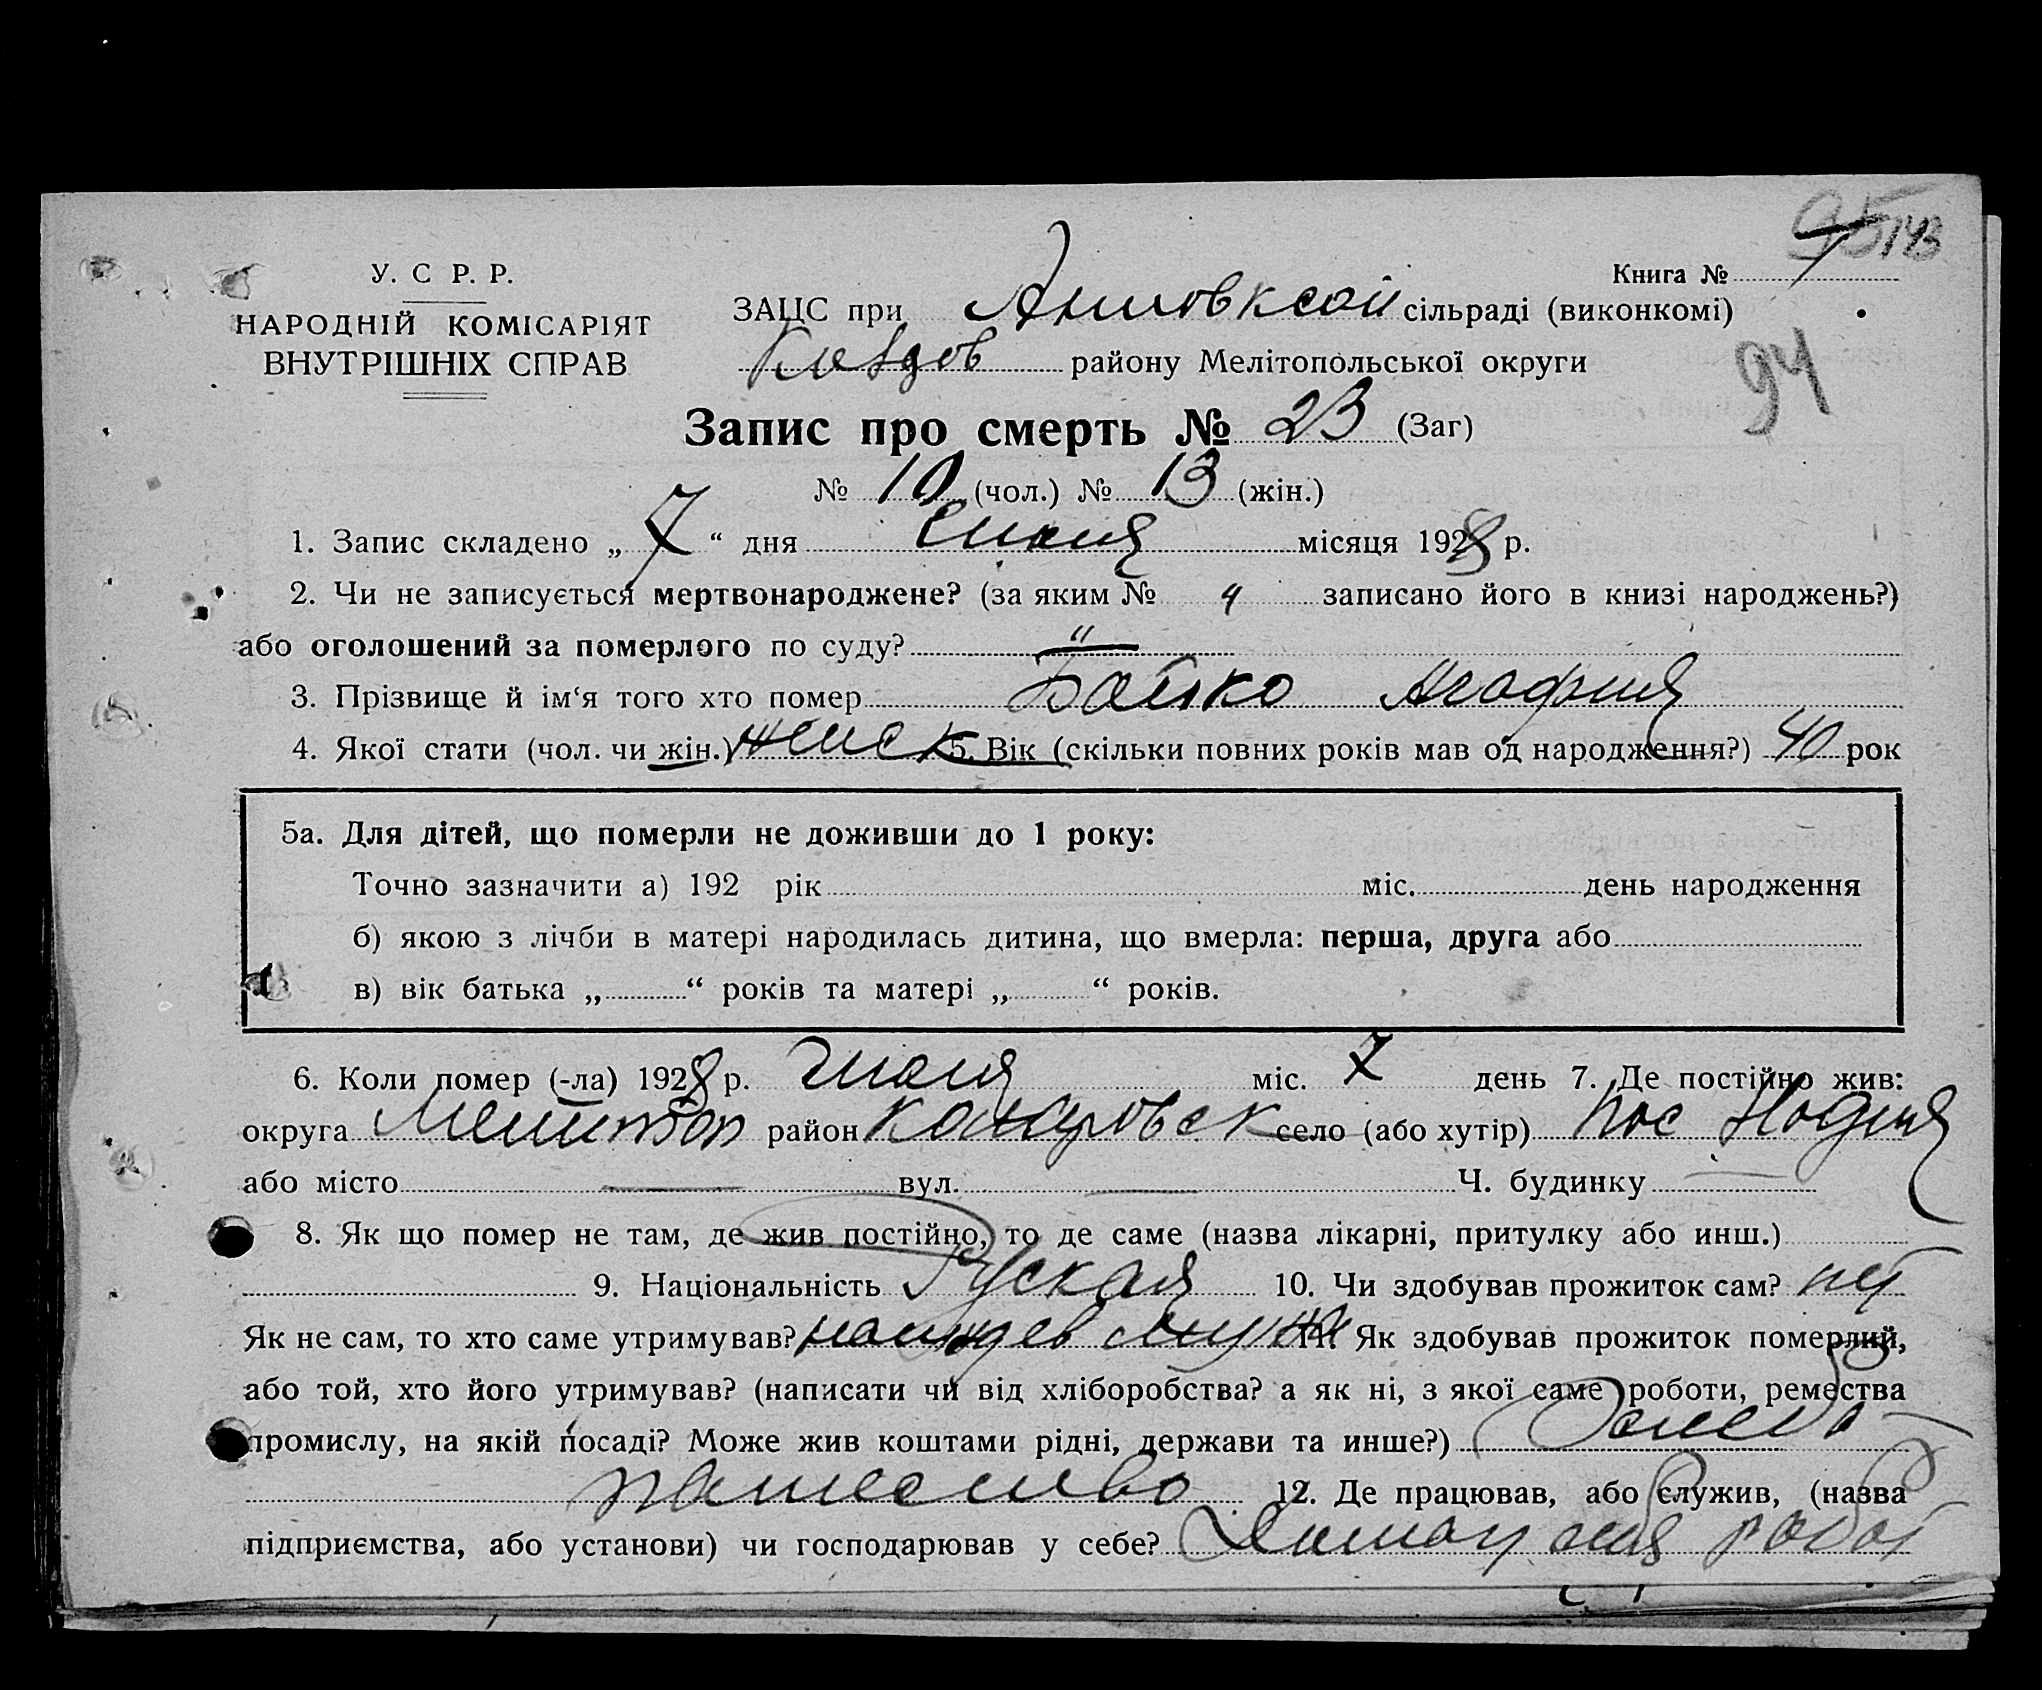 95 143
У. С Р. Р.
НАРОДНІЙ КОМІСАРІЯТ
ВНУТРІШНІХ СПРАВ
Книга № 1
ЗАЦС при сільраді (виконкомі)
району Мелітопольської округи
94
Запис про смерть № 23 (Заг)
№ 10 (чол.) № 13 (жін.)
1. Запис складено „ 7 “ дня Июня місяця 1928 р.
2. Чи не записується мертвонароджене? (за яким № записано його в книзі народжень?)
або оголошений за померлого по суду? "
3. Прізвище й ім‘я того хто помер Бойко Агафия
4. Якої стати (чол. чи жін.) женск 5. Вік (скільки повних років мав од народження?) 40 рок
5а. Для дітей, що померли не доживши до 1 року:
Точно зазначити а) 192 рік міс. день народження
б) якою з лічби в матері народилась дитина, що вмерла: перша, друга або
в) вік батька „ “ років та матері „ “ років.
6. Коли помер (-ла) 1928 р. Июня міс. 7 день 7. Де постійно жив:
округа Мелитоп район село (або хутір) пос
або місто — вул. — Ч. будинку —
8. Як що помер не там, де жив постійно, то де саме (назва лікарні, притулку або инш.)
9. Національність Руская 10. Чи здобував прожиток сам? нет
Як не сам, то хто саме утримував? муж 11. Як здобував прожиток померлий,
або той, хто його утримував? (написати чи від хліборобства? а як ні, з якої саме роботи, ремества
промислу, на якій посаді? Може жив коштами рідні, держави та инше?)
12. Де працював, або служив, (назва
підприємства, або установи) чи господарював у себе?